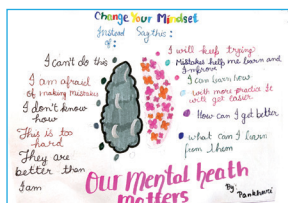 Change Your Mindset
Instead of:
Say this:
I can't do this
I am afraid
of making mistakes
I don't know
how
This is too
hard
They are
better than
I am
I will keep trying
Mistakes help me learn and
Improve
I can learn how
with more practice It
will get easier
How can I get better
what can I learn
from them
Our Mental heath
matters
By:
Pankhuri